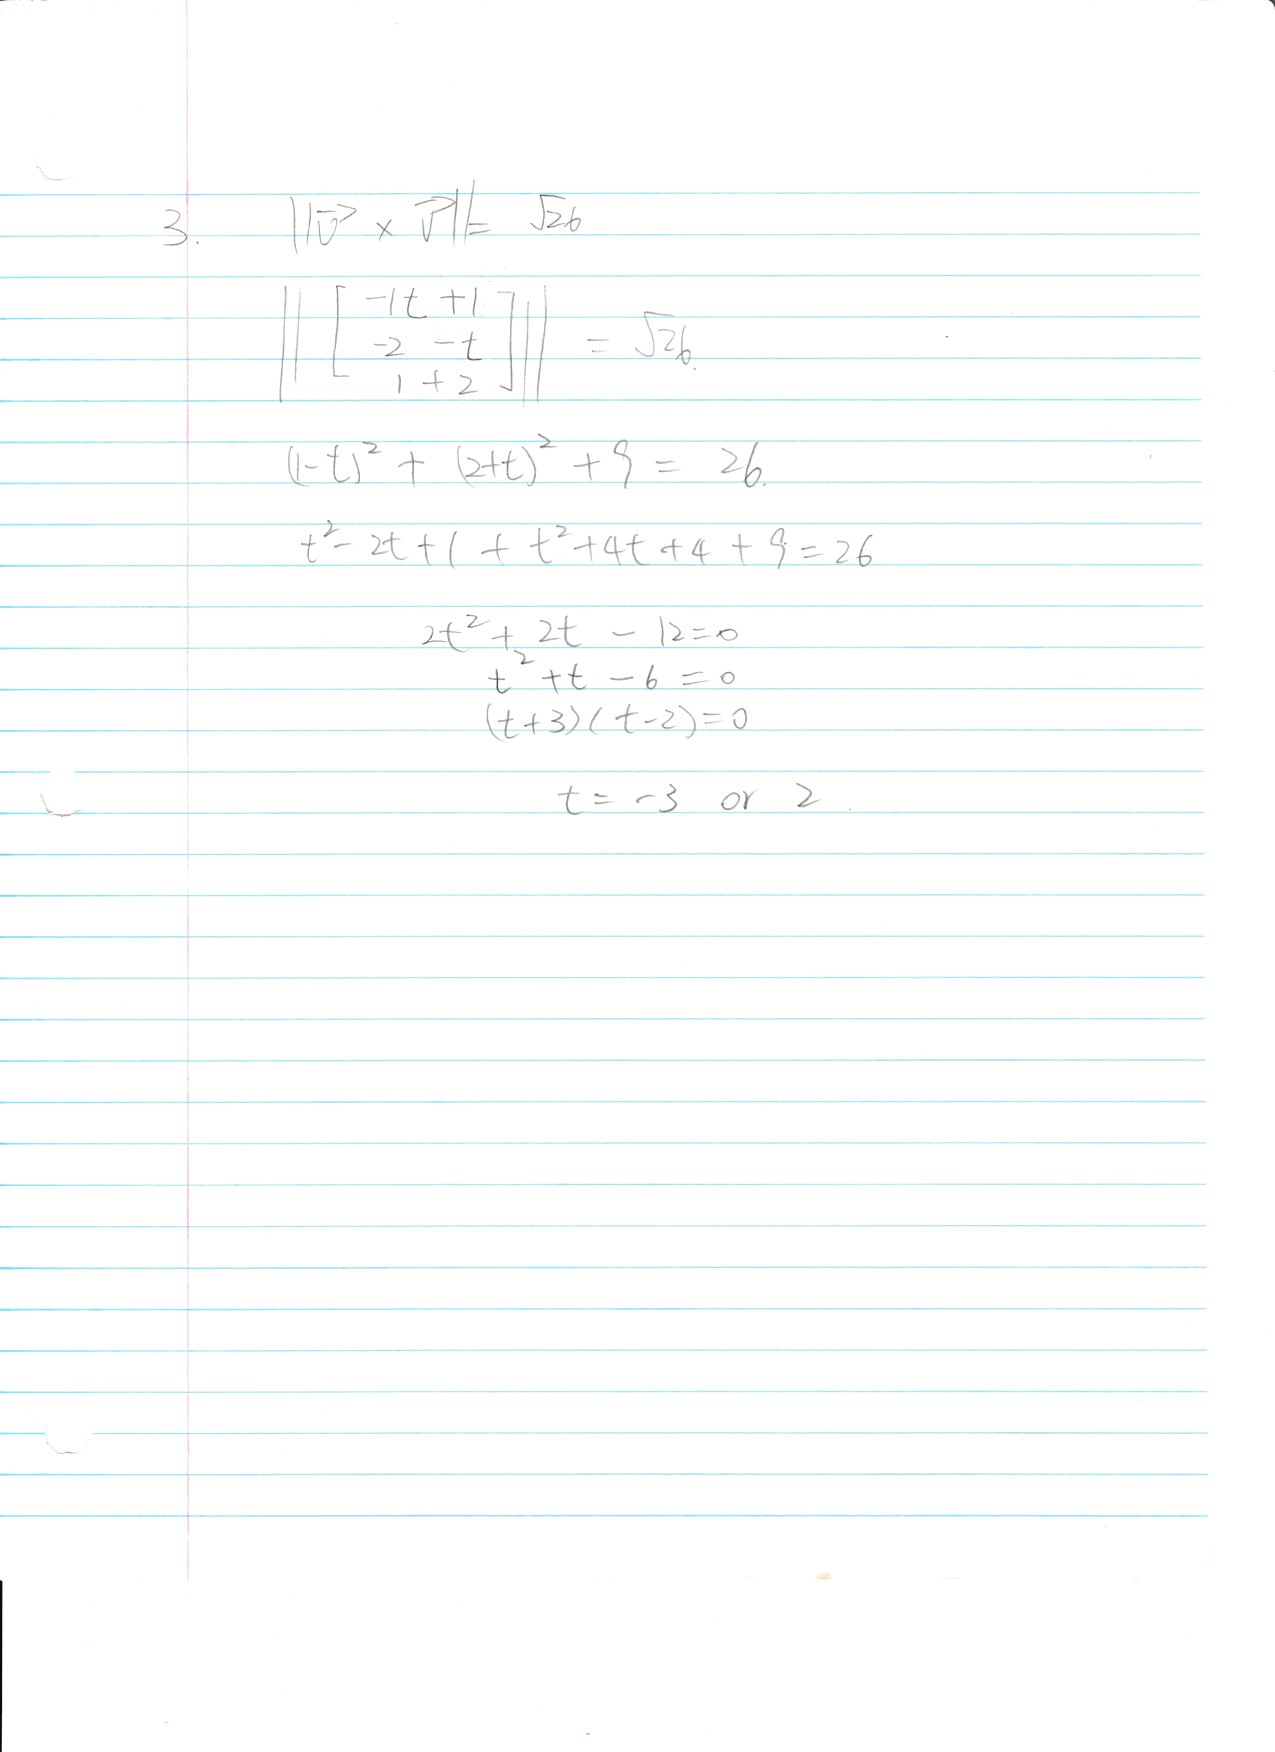 3. ||u⃗ × v⃗|| = √26
|| [ -1t +1
-2 -t
1 + 2 ] || = √26.
(1-t)² + (2+t)² + 9 = 26.
t² - 2t + 1 + t² + 4t + 4 + 9 = 26
2t² + 2t - 12 = 0
t² + t - 6 = 0
(t+3)(t-2) = 0
t = -3 or 2.